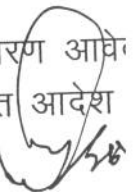 रण आवे
त आदेश